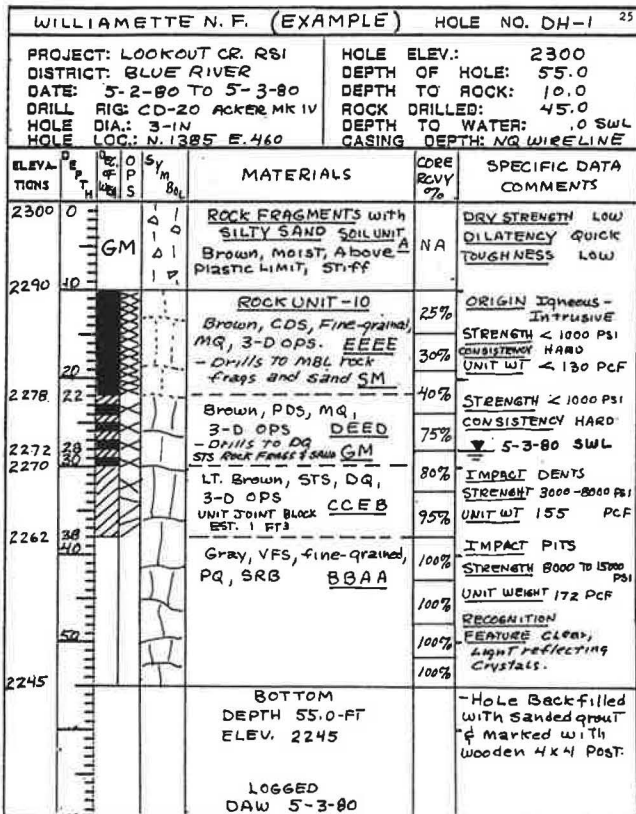 WILLIAMETTE N.F. (EXAMPLE) HOLE NO. DH-1 25
PROJECT: LOOKOUT CR. RS1
DISTRICT: BLUE RIVER
DATE: 5-2-80 TO 5-3-80
DRILL RIG: CD-20 ACKER MK IV
HOLE DIA.: 3-IN
HOLE LOC.: N.1385 E.460
HOLE ELEV.: 2300
DEPTH OF HOLE: 55.0
DEPTH TO ROCK: 10.0
ROCK DRILLED: 45.0
DEPTH TO WATER: .0 SWL
CASING DEPTH: NQ WIRELINE
ELEVA-TIONS DEPTH OPS SymBOL MATERIALS CORE RCVY % SPECIFIC DATA COMMENTS
2300 0
GM
ROCK FRAGMENTS with
SILTY SAND SOIL UNIT A
Brown, MOIST, Above
Plastic LIMIT, STiff
NA
DRY STRENGTH LOW
DILATENCY QUICK
TOUGHNESS LOW
2290 10
ROCK UNIT-10
Brown, CDS, Fine-grained,
MQ, 3-D OPS. EEEE
- Drills TO MBL rock
frags and sand SM
25%
30%
ORIGIN Igneous-
Intrusive
STRENGTH < 1000 PSI
CONSISTENCY HARD
UNIT WT < 130 PCF
20
2278 22
Brown, PDS, MQ,
3-D OPS DEED
- Drills TO DQ
STS ROCK FRAGS & SAND GM
40%
75%
STRENGTH < 1000 PSI
CONSISTENCY HARD
5-3-80 SWL
2272 28
2270 30
LT. Brown, STS, DQ,
3-D OPS CCEB
UNIT JOINT BLOCK
EST. 1 FT3
80%
95%
IMPACT DENTS
STRENGHT 3000-8000 PSI
UNIT WT 155 PCF
2262 38
40
Gray, VFS, fine-grained,
PQ, SRB BBAA
100%
100%
100%
100%
IMPACT PITS
STRENGTH 8000 TO 15000 PSI
UNIT WEIGHT 172 PCF
RECOGNITION
FEATURE Clear,
Light reflecting
Crystals.
50
2245
BOTTOM
DEPTH 55.0-FT
ELEV. 2245
LOGGED
DAW 5-3-80
-Hole Backfilled
with Sanded grout
& marked with
wooden 4x4 Post.